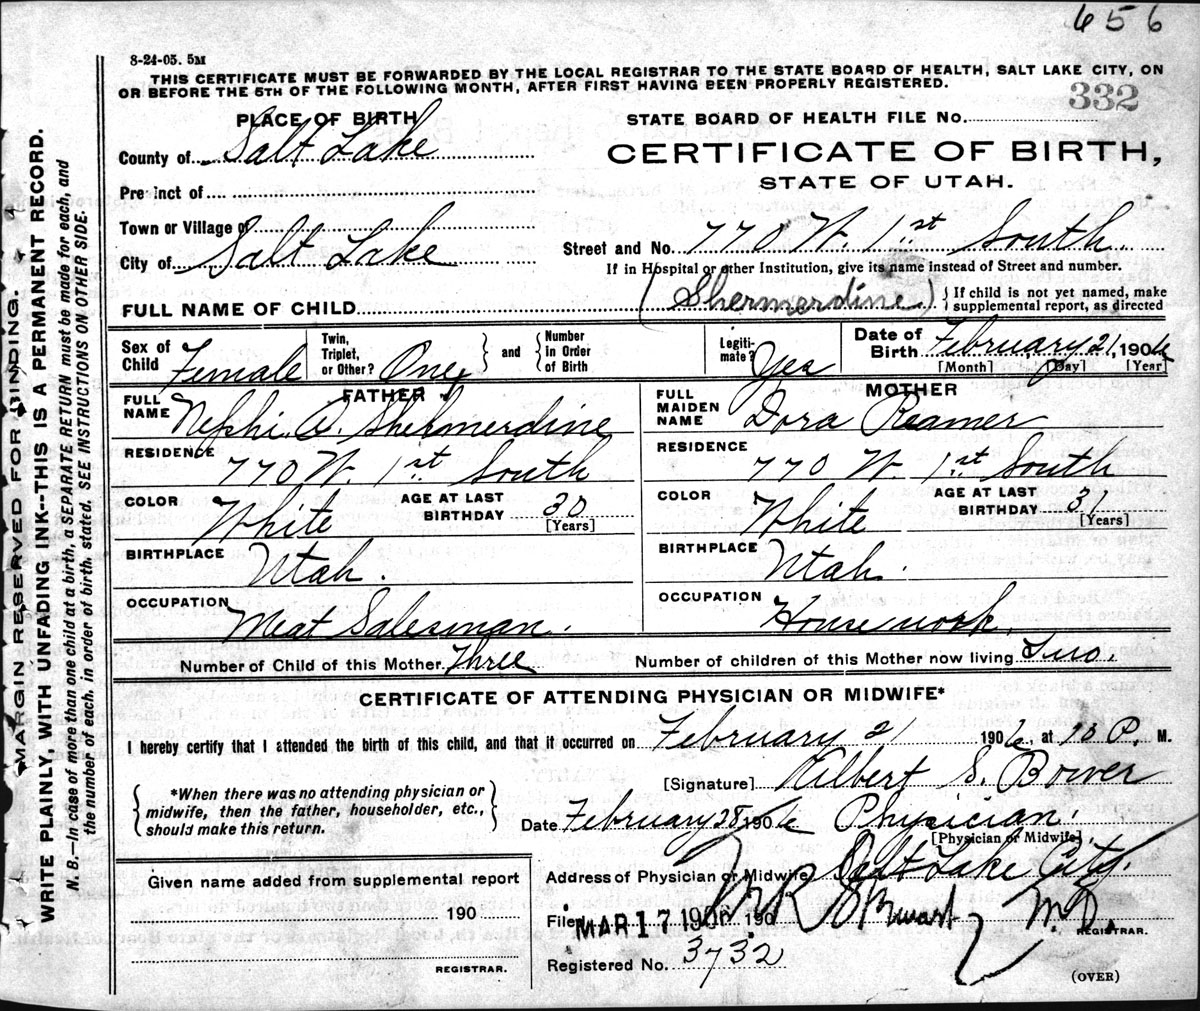 656
8-24-05. 5M
THIS CERTIFICATE MUST BE FORWARDED BY THE LOCAL REGISTRAR TO THE STATE BOARD OF HEALTH, SALT LAKE CITY, ON
OR BEFORE THE 5TH OF THE FOLLOWING MONTH, AFTER FIRST HAVING BEEN PROPERLY REGISTERED.
332
PLACE OF BIRTH
STATE BOARD OF HEALTH FILE No.
County of Salt Lake
CERTIFICATE OF BIRTH,
STATE OF UTAH.
Precinct of
Town or Village of
City of Salt Lake
Street and No. 770 W. 1st South
If in Hospital or other Institution, give its name instead of Street and number.
FULL NAME OF CHILD (Shermerdine) { If child is not yet named, make
supplemental report, as directed
Sex of Child Female
Twin, Triplet, or Other? One } and { Number in Order of Birth
Legitimate? Yes
Date of Birth February 21, 1906
[Month] [Day] [Year]
FATHER
FULL NAME Nephi A. Shermerdine
RESIDENCE 770 W. 1st South
COLOR White
AGE AT LAST BIRTHDAY 30
[Years]
BIRTHPLACE Utah.
OCCUPATION Meat Salesman.
MOTHER
FULL MAIDEN NAME Dora Reamer
RESIDENCE 770 W. 1st South
COLOR White
AGE AT LAST BIRTHDAY 31
[Years]
BIRTHPLACE Utah.
OCCUPATION House work.
Number of Child of this Mother Three
Number of children of this Mother now living Two.
CERTIFICATE OF ATTENDING PHYSICIAN OR MIDWIFE*
I hereby certify that I attended the birth of this child, and that it occurred on February 21 1906, at 10 P. M.
[Signature] Wilbert S. Bower
{ *When there was no attending physician or
midwife, then the father, householder, etc.,
should make this return. }
Date February 28 1906 Physician.
[Physician or Midwife].
Address of Physician or Midwife Salt Lake City.
Given name added from supplemental report
190
REGISTRAR.
Filed MAR 17 1906 190 M.D.
REGISTRAR.
Registered No. 3732
(OVER)
MARGIN RESERVED FOR BINDING.
WRITE PLAINLY, WITH UNFADING INK--THIS IS A PERMANENT RECORD.
N. B.—In case of more than one child at a birth, a SEPARATE RETURN must be made for each, and
the number of each, in order of birth, stated. SEE INSTRUCTIONS ON OTHER SIDE.